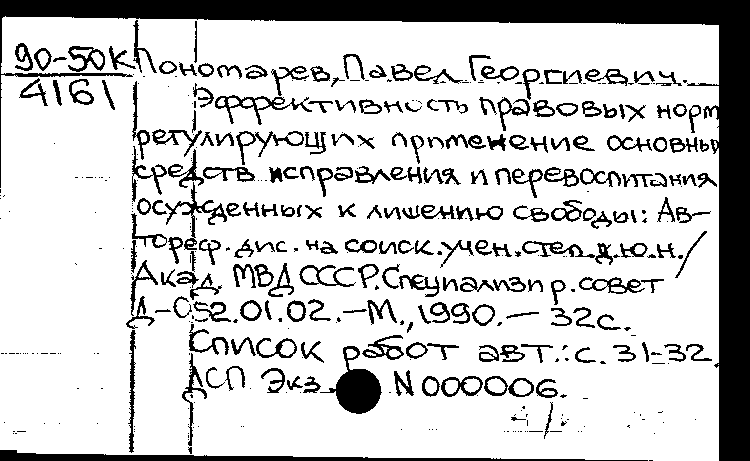 90-50к Пономарев, Павел Георгиевич.
4161
Эффективность правовых норм
регулирующих применение основных
средств исправления и перевоспитания
осужденных к лишению свободы: Ав-
тореф. дис. на соиск. учен. степ. д.ю.н./
Акад. МВД СССР. Специализир. совет
Д-052.01.02.-М., 1990.- 32 с.
Список работ авт.: с. 31-32.
ДСП Экз. N 000006.